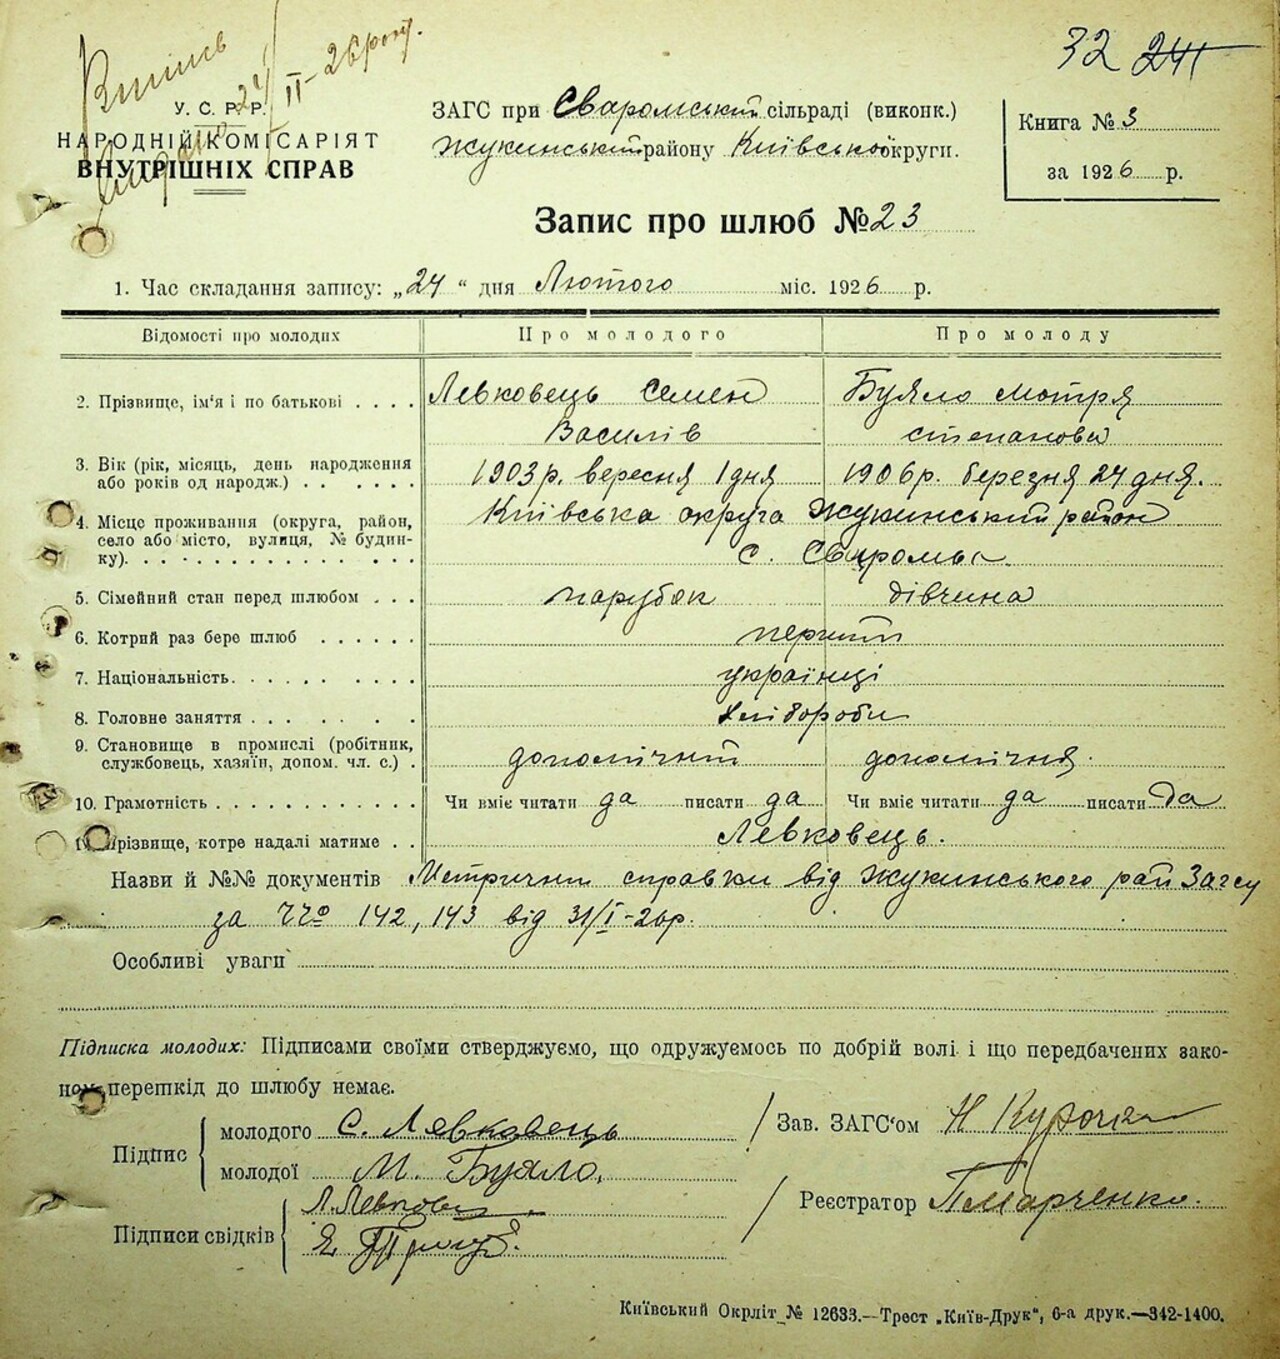 Витяг
видано 24/II-26 року.
32 241
У. С. Р. Р.
НАРОДНІЙ КОМІСАРІЯТ
ВНУТРІШНІХ СПРАВ
ЗАГС при Сваромський сільраді (виконк.)
Жукинський району Київської округи.
Книга № 3
за 1926 р.
Запис про шлюб № 23
1. Час складання запису: „24" дня Лютого міс. 1926 р.
Відомості про молодих Про молодого Про молоду
2. Прізвище, ім'я і по батькові . . . . Левковець Семен Буяло Мотря
Василів степанова
3. Вік (рік, місяць, день народження або років од народж.) . . . . . . 1903 р. вересня 1 дня 1906 р. березня 24 дня.
4. Місце проживання (округа, район, село або місто, вулиця, № будинку). Київська округа Жукинський район
с. Сваромьє.
5. Сімейний стан перед шлюбом . . . парубок дівчина
6. Котрий раз бере шлюб . . . . . . перший
7. Національність. . . . . . . . . . українці
8. Головне заняття . . . . . . . хлібороби
9. Становище в промислі (робітник, службовець, хазяїн, допом. чл. с.) . допомічний допомічня.
10. Грамотність . . . . . . . . . . . . Чи вміє читати да писати да Чи вміє читати да писати да
11. Прізвище, котре надалі матиме . . Левковець.
Назви й №№ документів Метричний справки від Жукинського рай Загсу
за 142, 143 від 31/I-26р.
Особливі уваги
Підписка молодих: Підписами своїми стверджуємо, що одружуємось по добрій волі і що передбачених зако-
ном перешкід до шлюбу немає.
Підпис
молодого С. Лявковець
молодої М. Буяло.
Зав. ЗАГС'ом
Підписи свідків
Л. Левков
Є.
Реєстратор П Марченко.
Київський Окрліт № 12633.—Трест „Київ-Друк", 6-а друк.—342-1400.